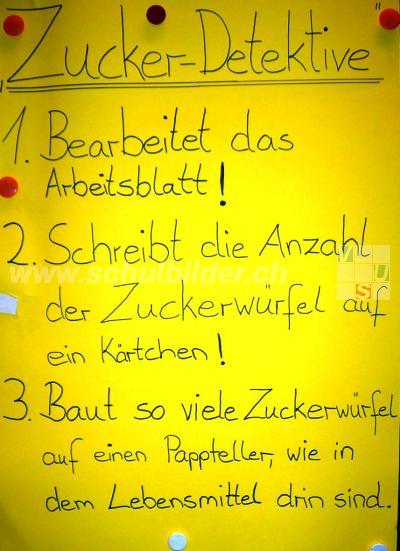 „Zucker-Detektive"
1. Bearbeitet das
Arbeitsblatt!
2. Schreibt die Anzahl
www.schulbilder.ch
der Zuckerwürfel auf
ein Kärtchen!
3. Baut so viele Zuckerwürfel
auf einen Pappteller, wie in
dem Lebensmittel drin sind.